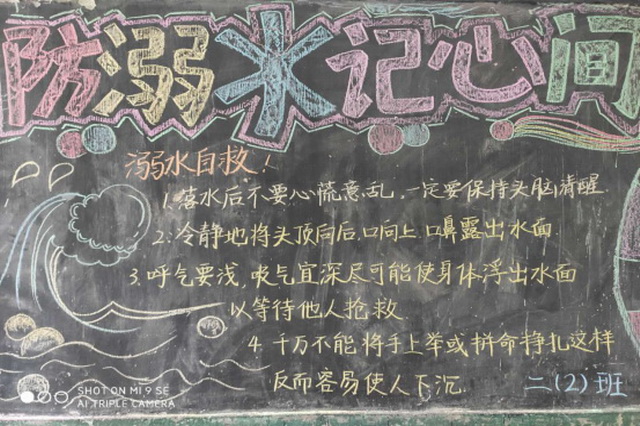 防溺水记心间
溺水自救！
1.落水后不要心慌意乱，一定要保持头脑清醒.
2.冷静地将头顶向后,口向上,口鼻露出水面.
3.呼气要浅,吸气宜深尽可能使身体浮出水面
以等待他人抢救.
4.千万不能将手上举或拼命挣扎这样
反而容易使人下沉.
二(2)班
SHOT ON MI 9 SE
AI TRIPLE CAMERA